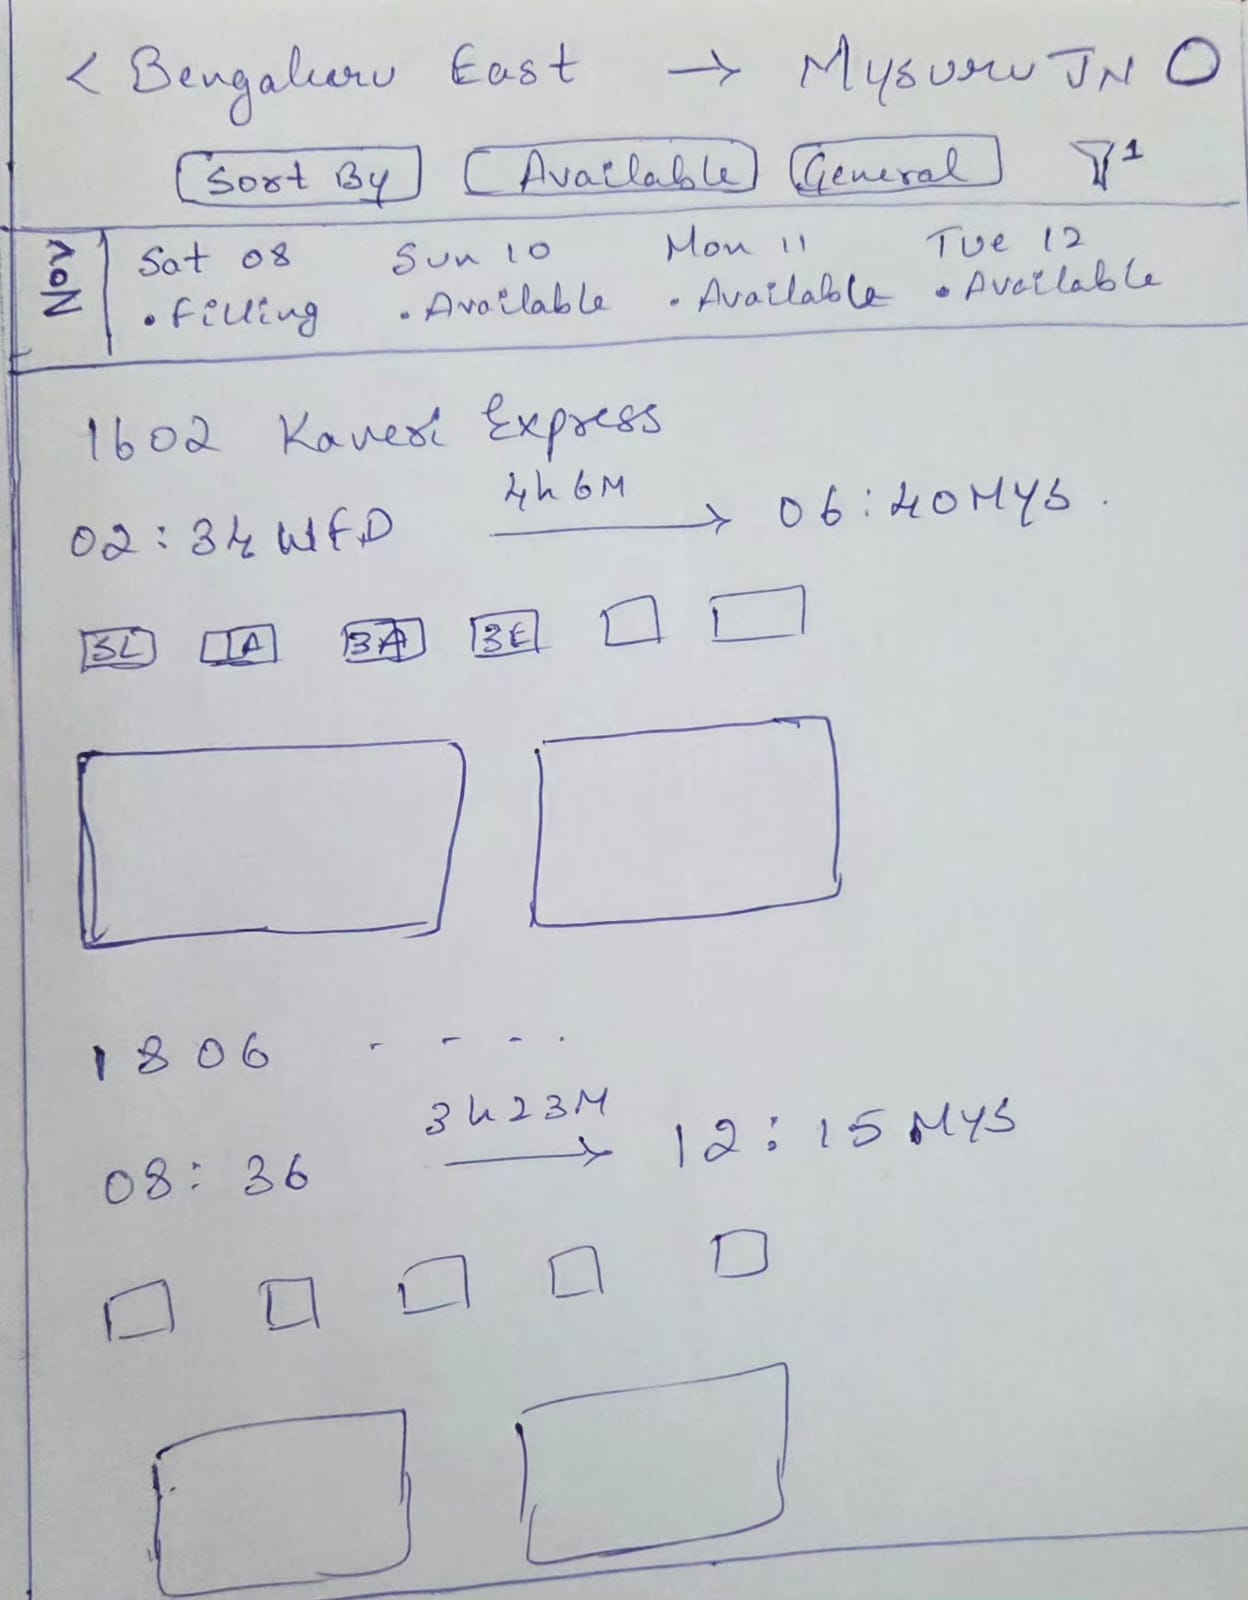 < Bengaluru East → Mysuru JN
Sort By Available General 1
Nov
Sat 08 Sun 10 Mon 11 Tue 12
• Filling • Available • Available • Available
1602 Kaveri Express
4h 6M
02:34 WFD → 06:40 MYS.
SL 1A 3A 3E
1806 - - - .
3h 23M
08:36 → 12:15 MYS